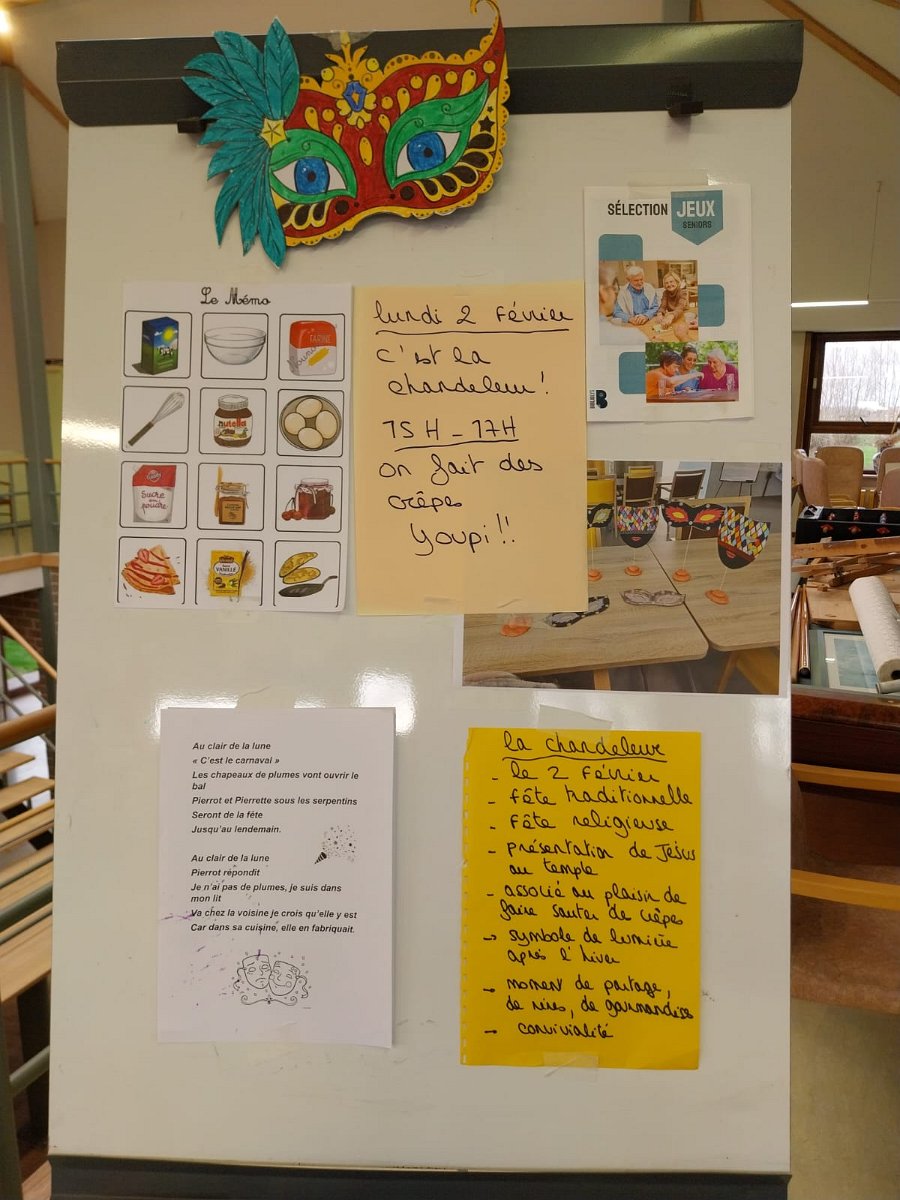 SÉLECTION JEUX
SENIORS
Le Mémo
FARINE
nutella
Sucre
en
poudre
VANILLE
lundi 2 février
C'est la
chandeleur!
15H - 17H
on fait des
crêpes
Youpi!!
Au clair de la lune
« C'est le carnaval »
Les chapeaux de plumes vont ouvrir le
bal
Pierrot et Pierrette sous les serpentins
Seront de la fête
Jusqu'au lendemain.
Au clair de la lune
Pierrot répondit
Je n'ai pas de plumes, je suis dans
mon lit
Va chez la voisine je crois qu'elle y est
Car dans sa cuisine, elle en fabriquait.
la chandeleur
- le 2 février
- fête traditionnelle
- fête religieuse
- présentation de Jésus
au temple
- associé au plaisir de
faire sauter de crêpes
→ symbole de lumière
après l'hiver
→ moment de partage,
de rires, de gourmandises
→ convivialité